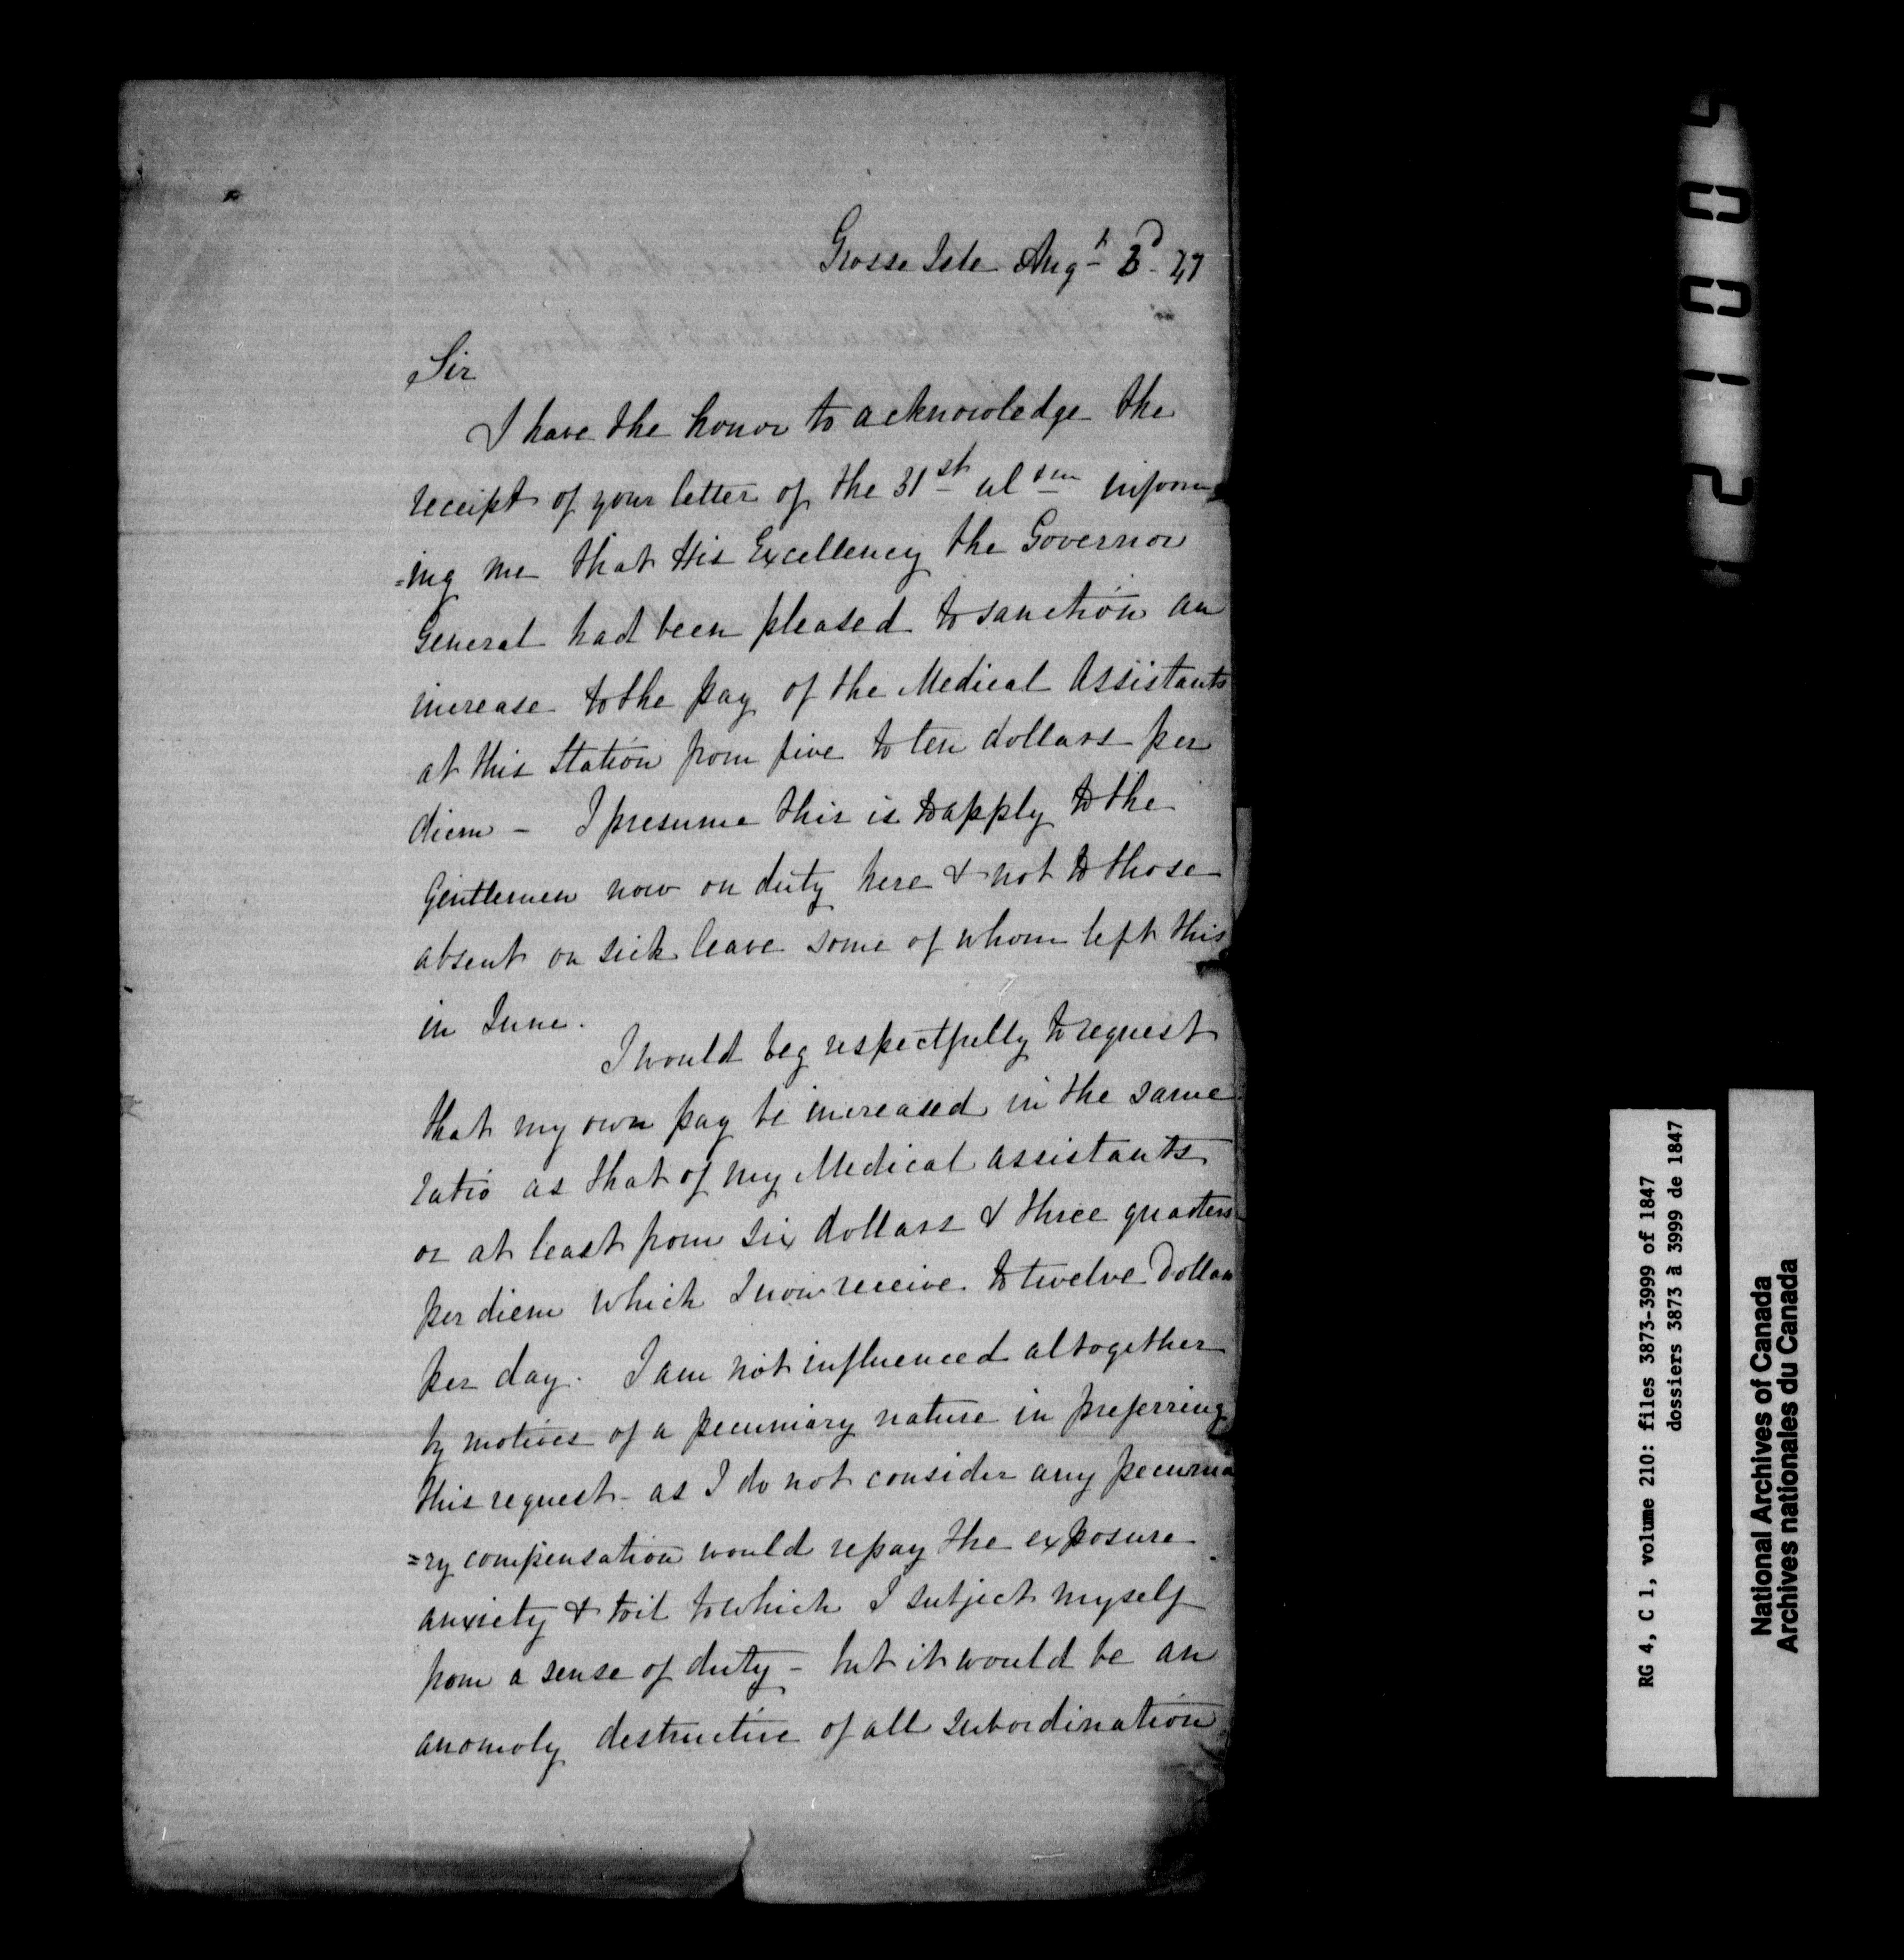 Grosse Isle Augt 3d 47
Sir
I have the honor to acknowledge the
receipt of your letter of the 31st ul inform
=ing me that His Excellency the Governor
General had been pleased to sanction an
increase to the pay of the Medical Assistants
at this Station from five to ten dollars per
diem - I presume this is to apply to the
Gentlemen now on duty here & not to those
absent on sick leave some of whom left this
in June.
I would beg respectfully to request
that my own pay be increased in the same
ratio as that of my Medical assistants
or at least from six dollars & three quarters
per diem which I now receive to twelve Dollars
per day. I am not influenced altogether
by motives of a pecuniary nature in preferring
this request - as I do not consider any pecunia
=ry compensation would repay the exposure
anxiety & toil to which I subject myself
from a sense of duty - but it would be an
anomoly destructive of all subordination
RG 4, C 1, volume 210: files 3873-3999 of 1847
dossiers 3873 à 3999 de 1847
National Archives of Canada
Archives nationales du Canada